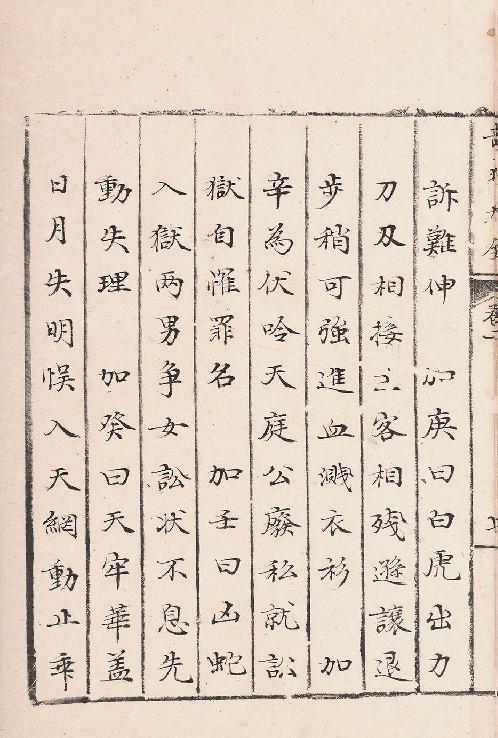 訴難伸　加庚曰白虎出力
刀刄相接主客相殘遜讓退
歩稍可強進血濺衣衫　加
辛為伏吟天庭公廢私就訟
獄自惟罪名　加壬曰凶蛇
入獄两男争女訟状不息先
動失理　加癸曰天牢華盖
日月失明悞入天網動止乖